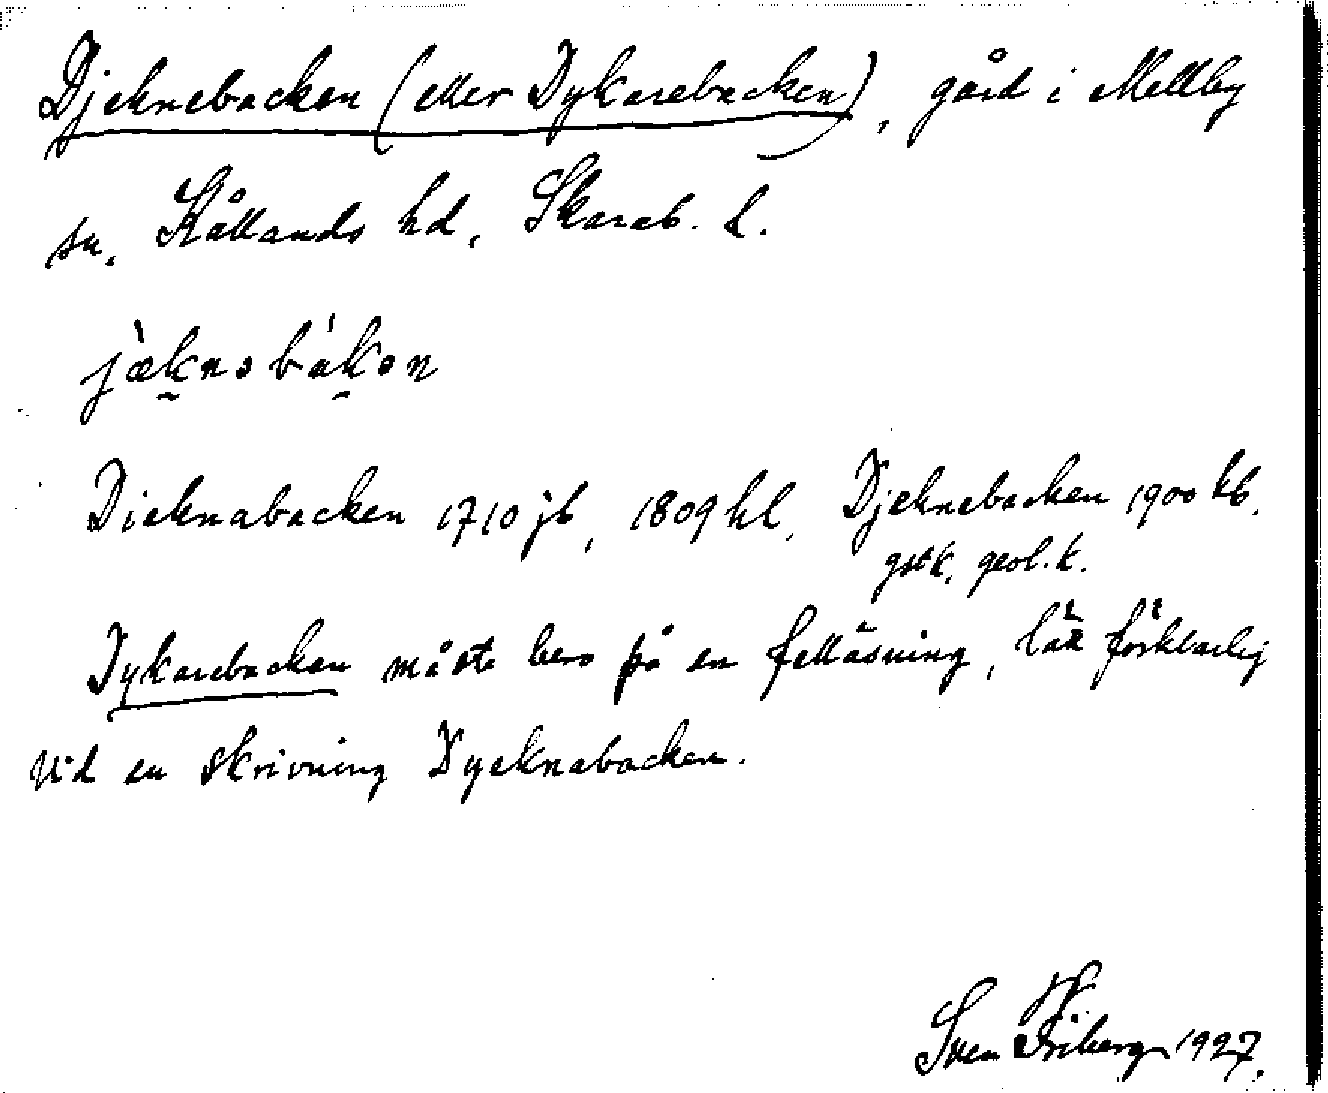 Djeknebacken (eller Dykarebacken), gård i Mellby
sn, Kållands hd, Skarab. l.
jæ̀knəbákən
Dieknabacken 1710 jb, 1809 hl, Djeknebacken 1900 kb.
gstk, geol. k.
Dykarebacken måste bero på en felläsning, lätt förklarlig
vid en skrivning Dyeknabacken.
Sven Friberg 1927.